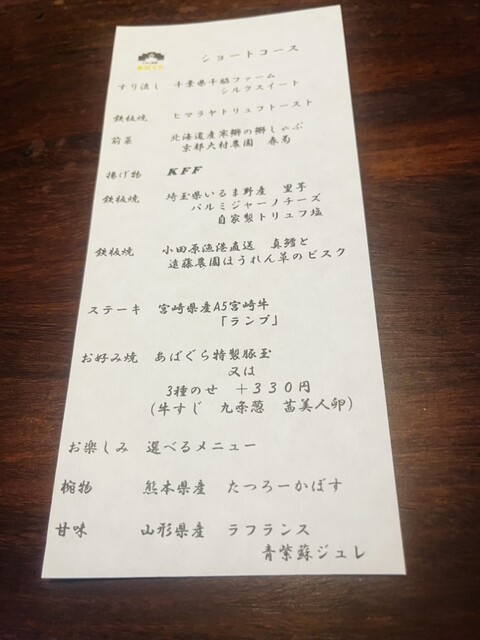 ショートコース
すり流し 千葉県千脇ファーム
シルクスイート
鉄板焼 ヒマラヤトリュフトースト
前菜 北海道産寒鰤の鰤しゃぶ
京都大村農園 春菊
揚げ物 KFF
鉄板焼 埼玉県いるま野産 里芋
パルミジャーノチーズ
自家製トリュフ塩
鉄板焼 小田原漁港直送 真鱈と
遠藤農園ほうれん草のビスク
ステーキ 宮崎県産A5宮崎牛
「ランプ」
お好み焼 あばぐら特製豚玉
又は
3種のせ +330円
(牛すじ 九条葱 茜美人卵)
お楽しみ 選べるメニュー
椀物 熊本県産 たつろーかぼす
甘味 山形県産 ラフランス
青紫蘇ジュレ